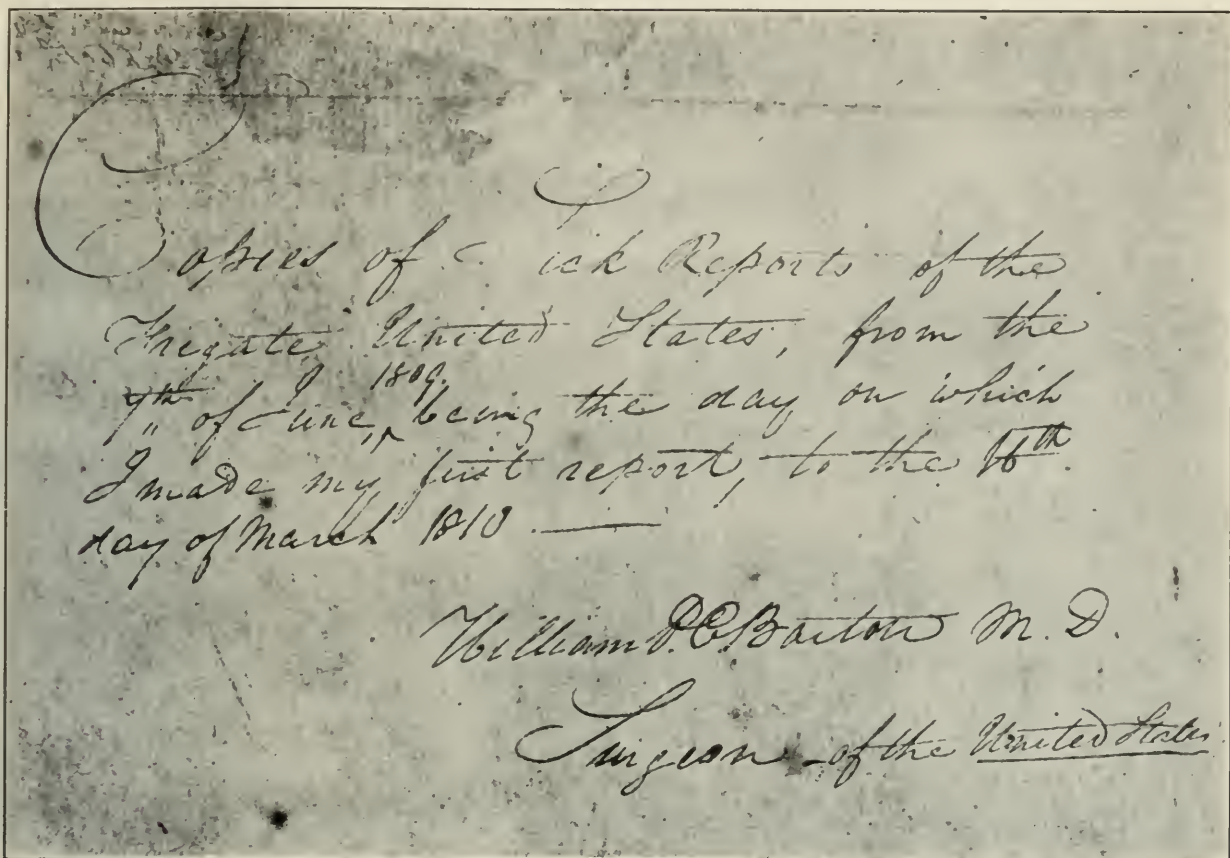 Copies of Sick Reports of the
Frigate United States, from the
7th of June, 1809. being the day on which
I made my first report, to the 16th
day of March 1810
William P. C. Barton M. D.
Surgeon of the United States